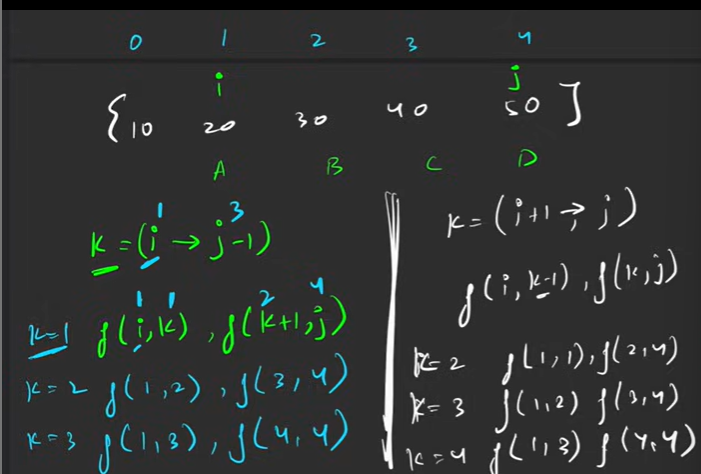 0 1 2 3 4
i j
{10 20 30 40 50]
A B C D
1 3
k = (i → j-1)
1 1 2 4
k=1 f(i,k), f(k+1,j)
k=2 f(1,2), f(3,4)
k=3 f(1,3), f(4,4)
k = (i+1 → j)
f(i,k-1), f(k,j)
k=2 f(1,1), f(2,4)
k=3 f(1,2) f(3,4)
k=4 f(1,3) f(4,4)